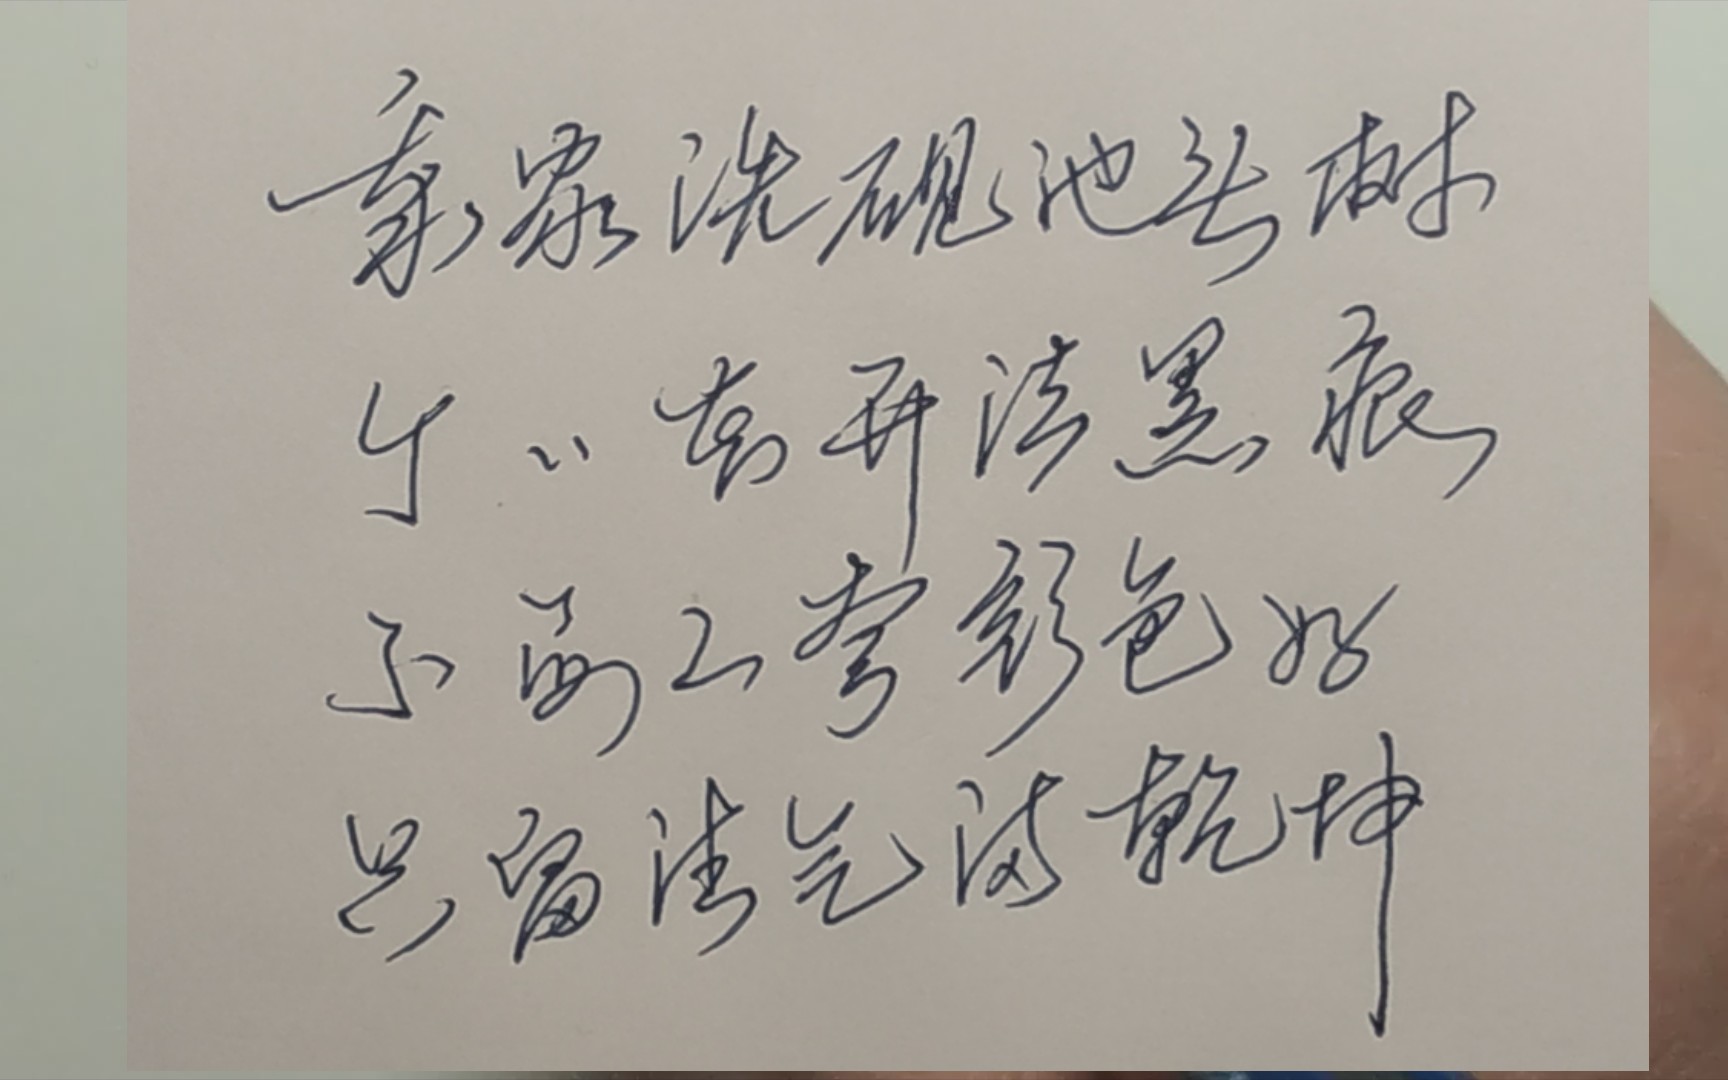 我家洗砚池头树
个々花开淡墨痕
不要人夸颜色好
只留清气满乾坤